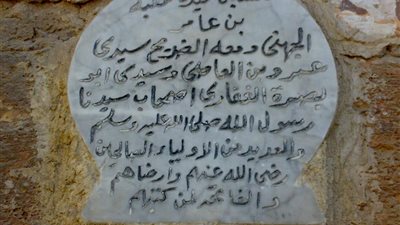 عقبة
بن عامر
الجهنى ومعه الضريح سيدى
عمرو بن العاص وسيدى ابو
بصرة الغفارى اصحاب سيدنا
رسول الله صلى الله عليه وسلم
والعديد من الاولياء الصالحين
رضى الله عنهم وارضاهم
والفاتحه لمن كتبهم